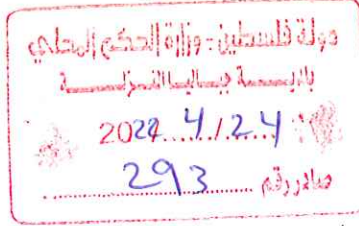 دولة فلسطين - وزارة الحكم المحلي
بلديـــة جباليا النـزلـــة
2022 4/24
صادر رقم 293